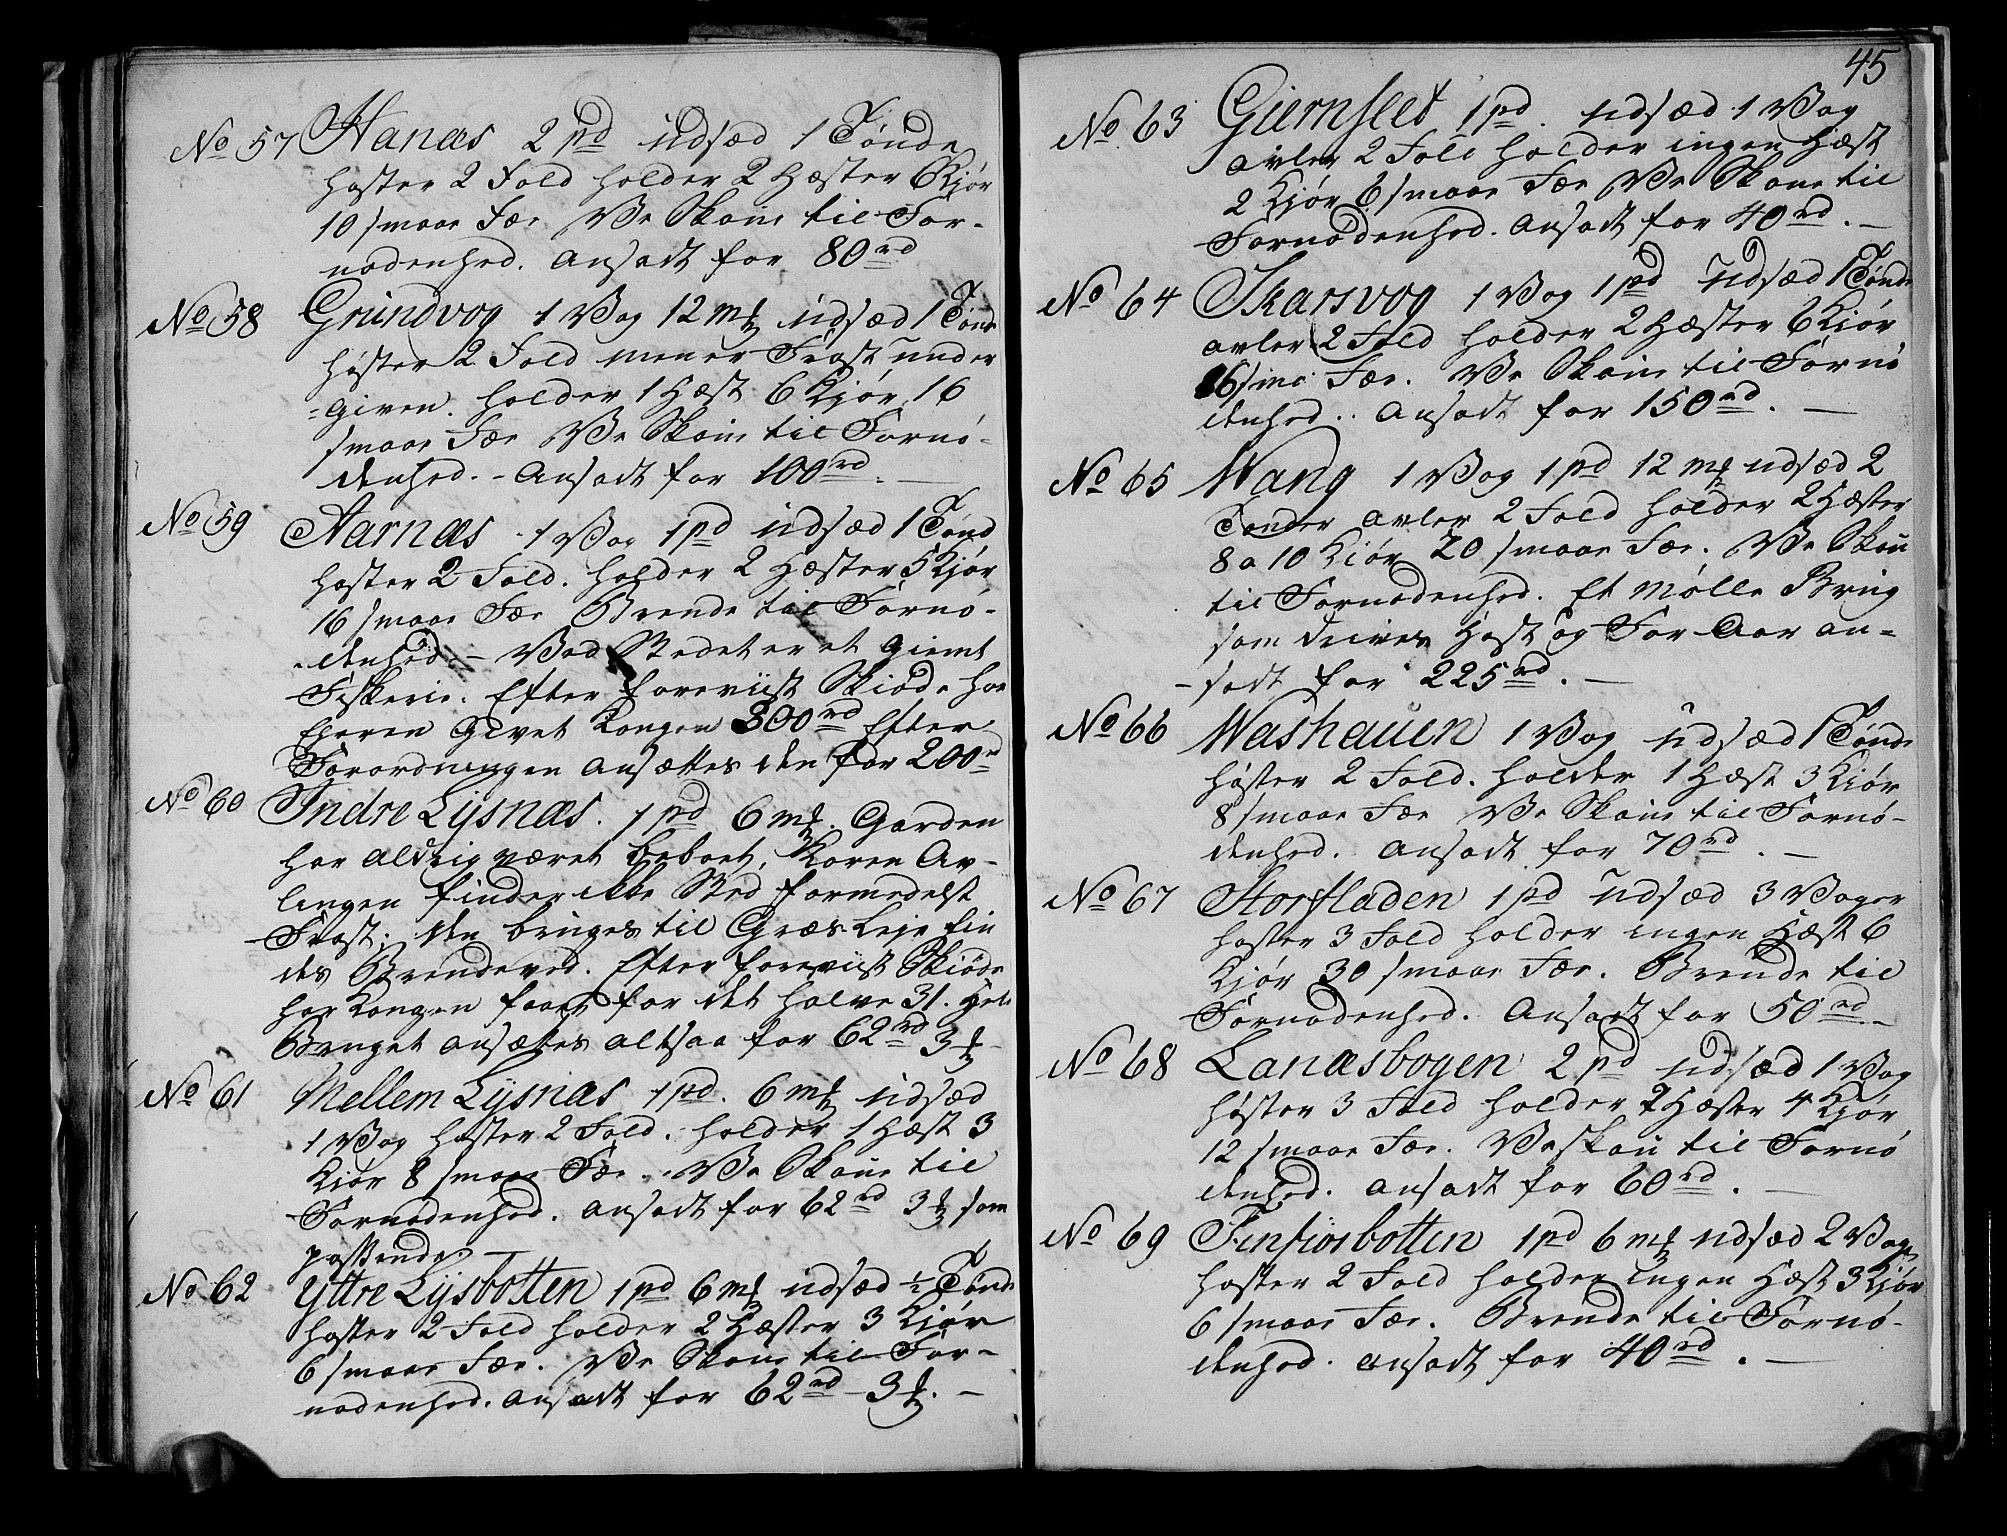 No 57 Hanæs 2 pd udsæd 1 Tønde
høster 2 Fold holder 2 Hæster 6 Kiør
10 smaae Fæe Ve Skoug til For-
nødenhed. Ansadt for 80 rd
No 58 Grundvog 1 Vog 12 mk udsæd 1 Tønde
høster 2 Fold mener Frost under
-given. holder 1 Hæst 6 Kiør 16
smaae Fæe Ve Skoug til Fornø-
denhed. - Ansadt for 100 rd. —
No 59 Aarnæs 1 Vog 1 pd udsæd 1 Tønd
høster 2 Fold. holder 2 Hæster 5 Kiør
16 smaae Fæe Brende til Fornø-
denhed. — Ved Stedet er et Giemt
Fiskerie. Efter foreviist Skiøde har
Eyeren Givet Kongen 300 rd Efter
Forordningen ansættes den for 200 rd
No 60 Indre Lysnæs. 1 pd 6 mk. Garden
har aldrig været beboet, Koren Av-
lingen finder ikke Sted formedelst
Frost; den bruges til Græs Leje fin
des Brendeved. Efter foreviist Skiøde
har Kongen faaet for det halve 31. Hele
Bruget ansættes altsaa for 62 rd 3 ß
No 61 Mellem Lysnæs 1 pd. 6 mk udsæd
1 Vog høster 2 Fold. holder 1 Hæst 3
Kiør 8 smaae Fæe. Ve Skoug til
Fornødenhed. Ansadt for 62 rd 3 ß som
passende. —
No 62 Yttre Lysbotten 1 pd 6 mk udsæd ½ Tønde
høster 2 Fold holder 2 Hæster 3 Kiør
6 smaae Fæe. Ve Skoug til For-
nødenhed. Ansadt for 62 rd 3 ß. —
45
No 63 1 pd. udsæd 1 Vog
avler 2 Fold holder ingen Hæst
2 Kiør 6 smaae Fæe Ve Skoug til
Fornødenhed. Ansadt for 40 rd. —
No 64 Skarsvog 1 Vog 1 pd udsæd 1 Tønde
avler 2 Fold holder 2 Hæster 6 Kiør
16 sma Fæe. Ve Skoug til Fornø
denhed. Ansadt for 150 rd. —
No 65 Wang 1 Vog 1 pd 12 mk udsæd 2
Tønder avler 2 Fold holder 2 Hæster
8 a 10 Kiør 20 smaae Fæe. Ve Skou
til Fornødenhed. Et Mølle Brug
som drives Høst og For Aar an-
-sadt for 225 rd. —
No 66 Washauen 1 Vog udsæd 1 Tønde
høster 2 Fold. holder 1 Hæst 3 Kiør
8 smaae Fæe Ve Skoug til Fornø-
denhed. Ansadt for 70 rd. —
No 67 Storfladen 1 pd udsæd 3 Voger
høster 3 Fold holder ingen Hæst 6
Kiør 30 smaae Fæe. Brende til
Fornødenhed. Ansadt for 50 rd. —
No 68 Lanæsbogen 2 pd udsæd 1 Vog
høster 3 Fold holder 2 Hæster 4 Kiør
12 smaae Fæe. Ve skou til Fornø
denhed. Ansadt for 60 rd. —
No 69 Finfiorbotten 1 pd 6 mk udsæd 2 Voge
høster 2 Fold holder Ingen Hæst 3 Kiør
6 smaae Fæe. Brende til Fornø-
denhed. Ansadt for 40 rd. —